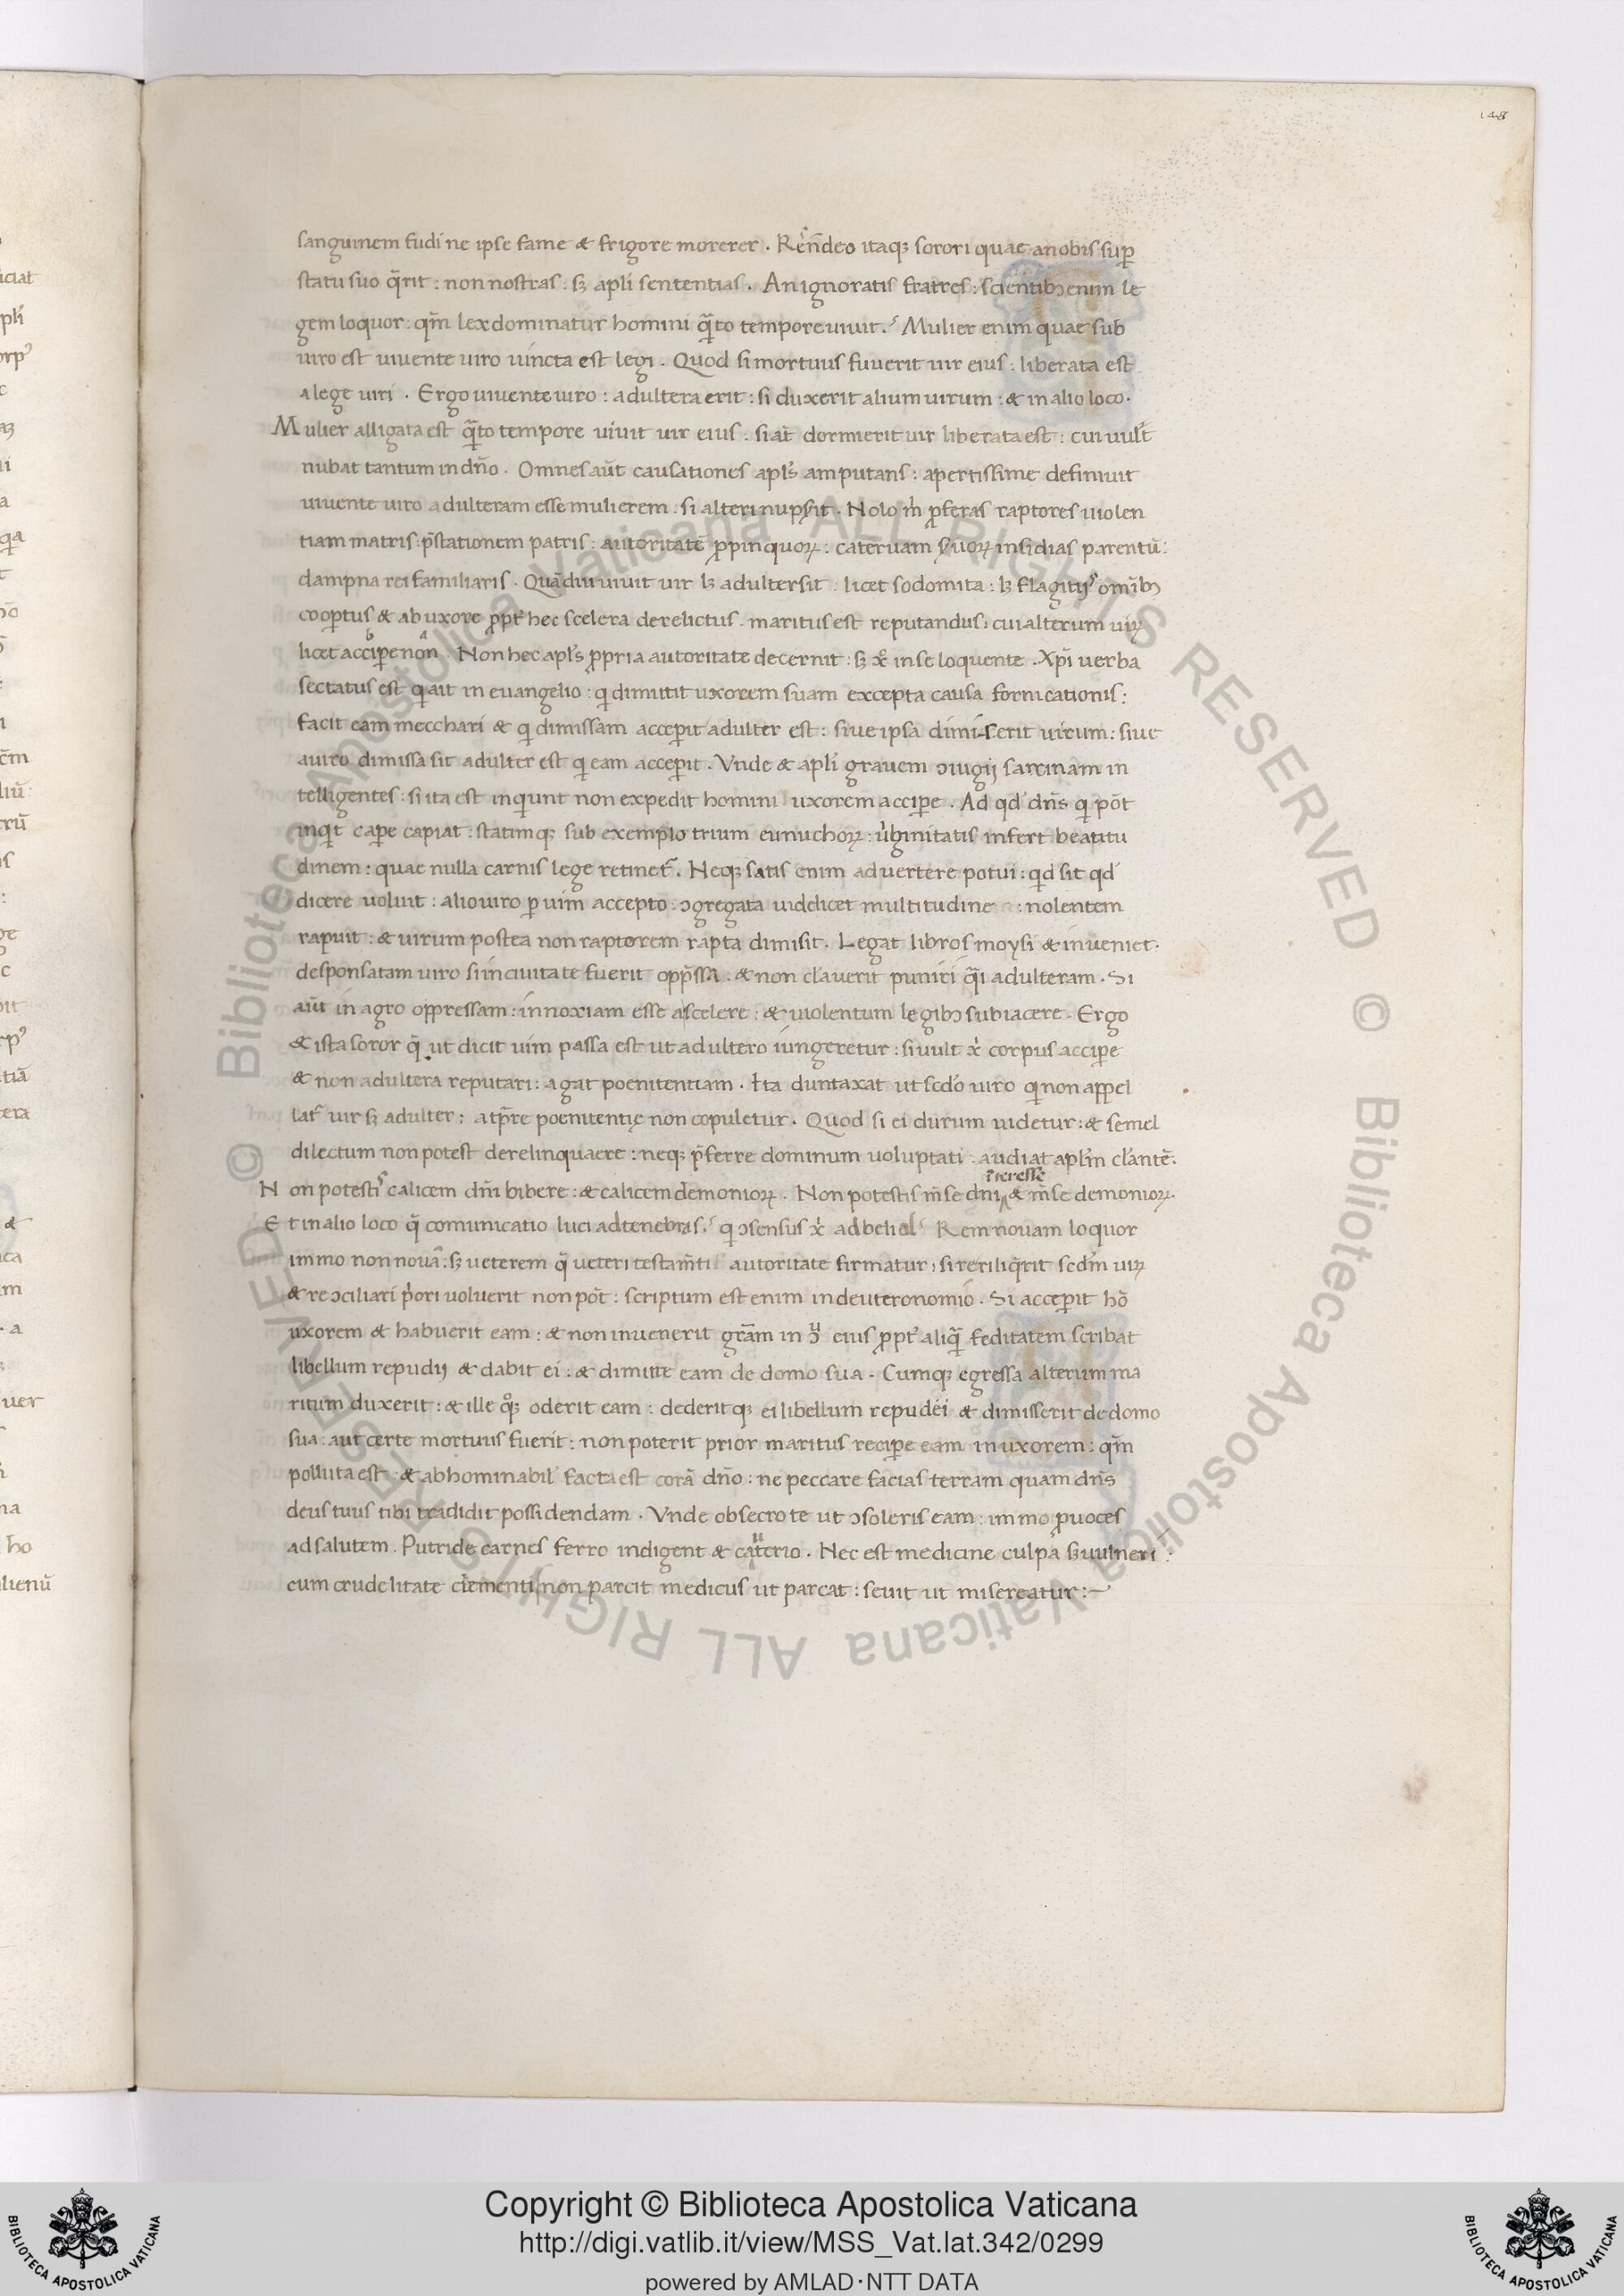 148
sanguinem fudi ne ipse fame & frigore morerer . Rn̄deo itaqꝫ sorori quae a nobis suꝑ
statu suo q̄rit : non nostras : sꝫ apl̄i sententias . An ignoratis fratres : scientibꝫ enim le
gem loquor : qm̄ lex dominatur homini q̄to tempore uiuit . Mulier enim quae sub
uiro est uiuente uiro uincta est legi . Quod si mortuus fuuerit uir eius : liberata est
a lege uiri . Ergo uiuente uiro : adultera erit : si duxerit alium uirum : & in alio loco .
Mulier alligata est q̄to tempore uiuit uir eius : si at̄ dormierit uir liberata est : cui uult
nubat tantum in dn̄o . Omnes aut̄ causationes apl̄s amputans : apertissime definiuit
uiuente uiro adulteram esse mulierem : si alteri nupsit . Nolo m̄ ꝓferas raptores uiolen
tiam matris : p̄stationem patris : autoritatē ꝓpinquoꝝ : cateruam suoꝝ insidias parentū :
dampna rei familiaris . Quādiu uiuit uir lꝫ adulter sit : licet sodomita : lꝫ flagitijs omībꝫ
cooꝑtus & ab uxore ꝓpt̄ hec scelera derelictus . maritus est reputandus : cui alterum uiꝝ
licet acciꝑe non . Non hec apl̄s ꝓpria autoritate decernit : sꝫ xo in se loquente . Xp̄i uerba
sectatus est q̄ ait in euangelio : q̄ dimittit uxorem suam excepta causa fornicationis :
facit eam mecchari & q̄ dimissam acceꝑit adulter est : siue ipsa dimiserit uirum : siue
a uiro dimissa sit adulter est q̄ eam acceꝑit . Vnde & apl̄i grauem ↄiugij sarcinam in
telligentes : si ita est inq̄unt non expedit homini uxorem acciꝑe . Ad qd̄ dn̄s q̄ pōt
inq̄t caꝑe capiat : statimqꝫ sub exemplo trium eunuchoꝝ : u̇ginitatis infert beatitu
dinem : quae nulla carnis lege retinet̄ . Neqꝫ satis enim aduertere potui : qd sit qd̄
dicere uoluit : alio uiro ꝑ uim accepto : ↄgregata uidelicet multitudine : nolentem
rapuit : & uirum postea non raptorem rapta dimisit . Legat libros moysi & inueniet .
desponsatam uiro si in ciuitate fuerit opp̄ssa : & non clauerit puniri q̄i adulteram . Si
aut̄ in agro oppressam : innoxiam esse a scelere : & uiolentum legibꝫ subiacere . Ergo
& ista soror q̄ ut dicit uim passa est ut adultero iungeretur : si uult x̄ corpus acciꝑe
& non adultera reputari : agat poenitentiam . Ita duntaxat ut scdo uiro q̄ non apꝑel
lat̄ uir sꝫ adulter : a tp̄re poenitentię non copuletur . Quod si ei durum uidetur : & semel
dilectum non potest derelinquaere : neqꝫ p̄ferre dominum uoluptati : audiat apl̄m cl̄antē .
Non potestis calicem dn̄i bibere : & calicem demonioꝝ . Non potestis m̄se dn̄i īteresse & m̄se demonioꝝ .
Et in alio loco q̄ comunicatio luci ad tenebras . q̄ ↄsensus x̄ ad belial Rem nouam loquor
immo non nouā : sꝫ ueterem q̄ ueteri testam̄ti autoritate firmatur : si reriliq̄rit scdm̄ uiꝝ
& reↄciliari p̄ori uoluerit non pōt : scriptum est enim in deuteronomio . Si acceꝑit hō
uxorem & habuerit eam : & non inuenerit gr̄am in ↄ eius ꝓpt̄ aliq̄ feditatem scribat
libellum repudij & dabit ei : & dimitte eam de domo sua . Cumqꝫ egressa alterum ma
ritum duxerit : & ille qoꝫ oderit eam : dederitqꝫ ei libellum repudei & dimisserit de domo
sua : aut certe mortuus fuerit : non poterit prior maritus reciꝑe eam in uxorem : qm̄
polluta est & abhominabil̄ facta est corā dn̄o : ne peccare facias terram quam dn̄s
deus tuus tibi tradidit possidendam . Vnde obsecro te ut ↄsoleris eam : immo ꝓuoces
ad salutem . Putride carnes ferro indigent & cauterio . Nec est medicine culpa sꝫ uulneris :
cum crudelitate clementi non parcit medicus ut parcat : seuit ut misereatur :
Copyright © Biblioteca Apostolica Vaticana
http://digi.vatlib.it/view/MSS_Vat.lat.342/0299
powered by AMLAD·NTT DATA
BIBLIOTECA APOSTOLICA VATICANA
BIBLIOTECA APOSTOLICA VATICANA
© Biblioteca Apostolica Vaticana ALL RIGHTS RESERVED © Biblioteca Apostolica Vaticana ALL RIGHTS RESERVED